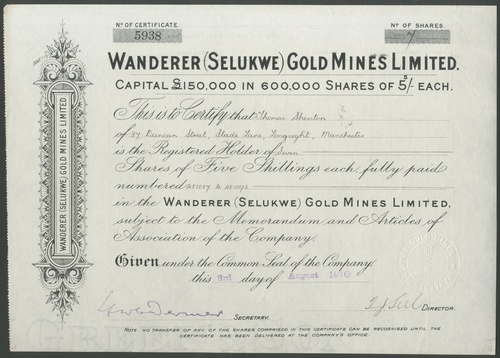 No OF CERTIFICATE.
5938
No OF SHARES.
7
WANDERER (SELUKWE) GOLD MINES LIMITED.
CAPITAL £150,000 IN 600,000 SHARES OF 5/- EACH.
This is to Certify that Thomas Shenton
of 34 Duncan Street, Slade Lane, Longsight, Manchester
is the Registered Holder of Seven
Shares of Five Shillings each, fully paid
numbered
in the WANDERER (SELUKWE) GOLD MINES LIMITED.
subject to the Memorandum and Articles of
Association of the Company.
Given under the Common Seal of the Company
this 3rd day of August 1910
SECRETARY.
DIRECTOR.
NOTE. NO TRANSFER OF ANY OF THE SHARES COMPRISED IN THIS CERTIFICATE CAN BE RECOGNISED UNTIL THE
CERTIFICATE HAS BEEN DELIVERED AT THE COMPANY'S OFFICE.
WANDERER (SELUKWE) GOLD MINES LIMITED